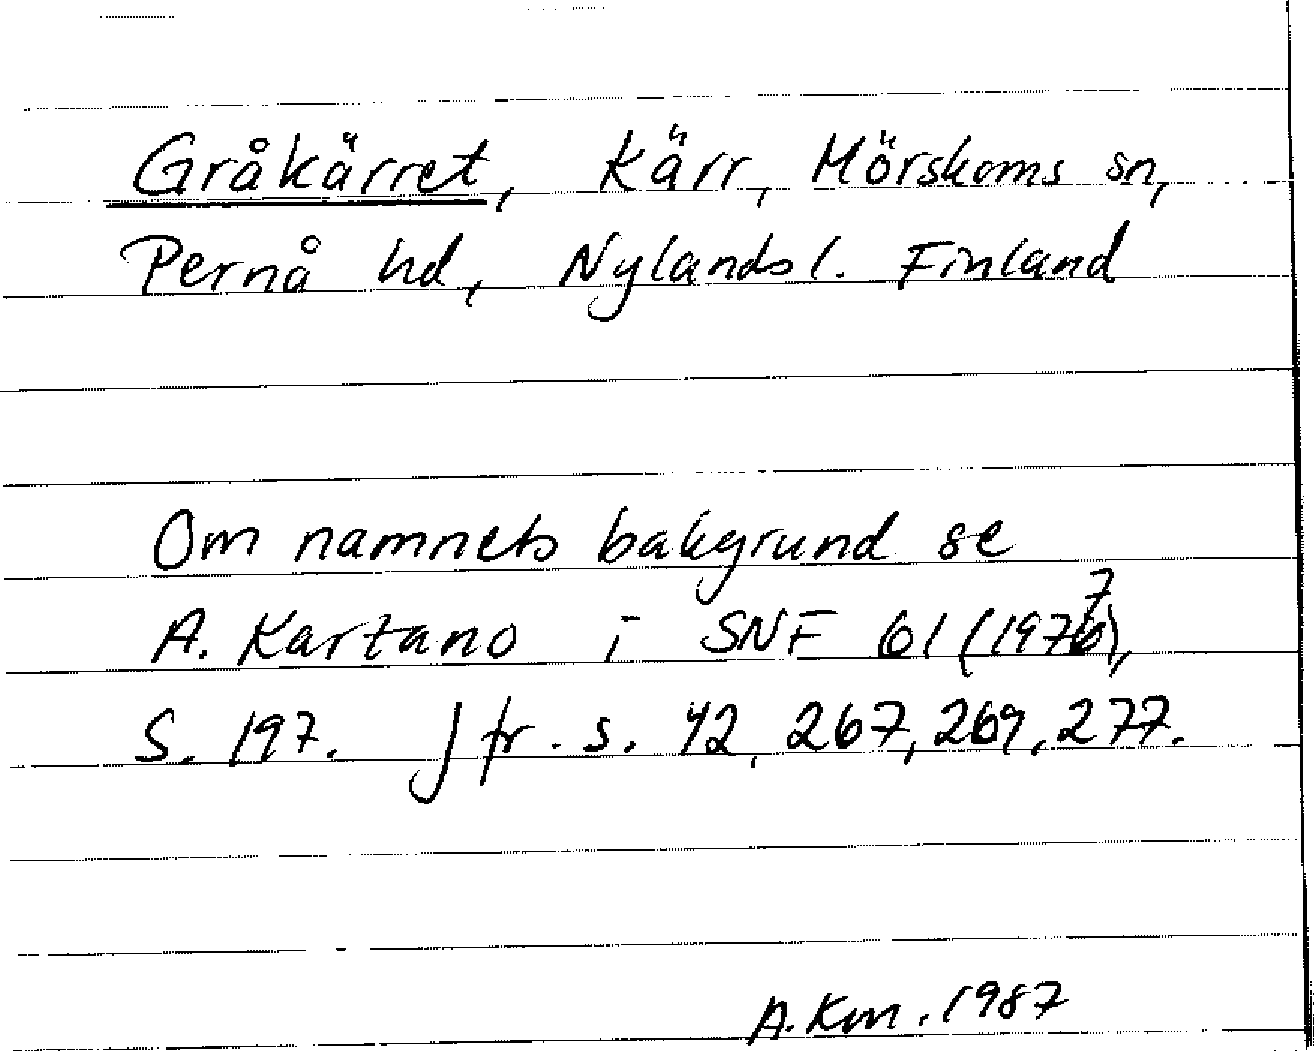 Gråkärret, Kärr, Mörskoms sn,
Pernå hd, Nylands l. Finland
Om namnets bakgrund se
A. Kartano i SNF 61 (1977),
S. 197. Jfr. s. 42, 267, 269, 277.
A. Km. 1987